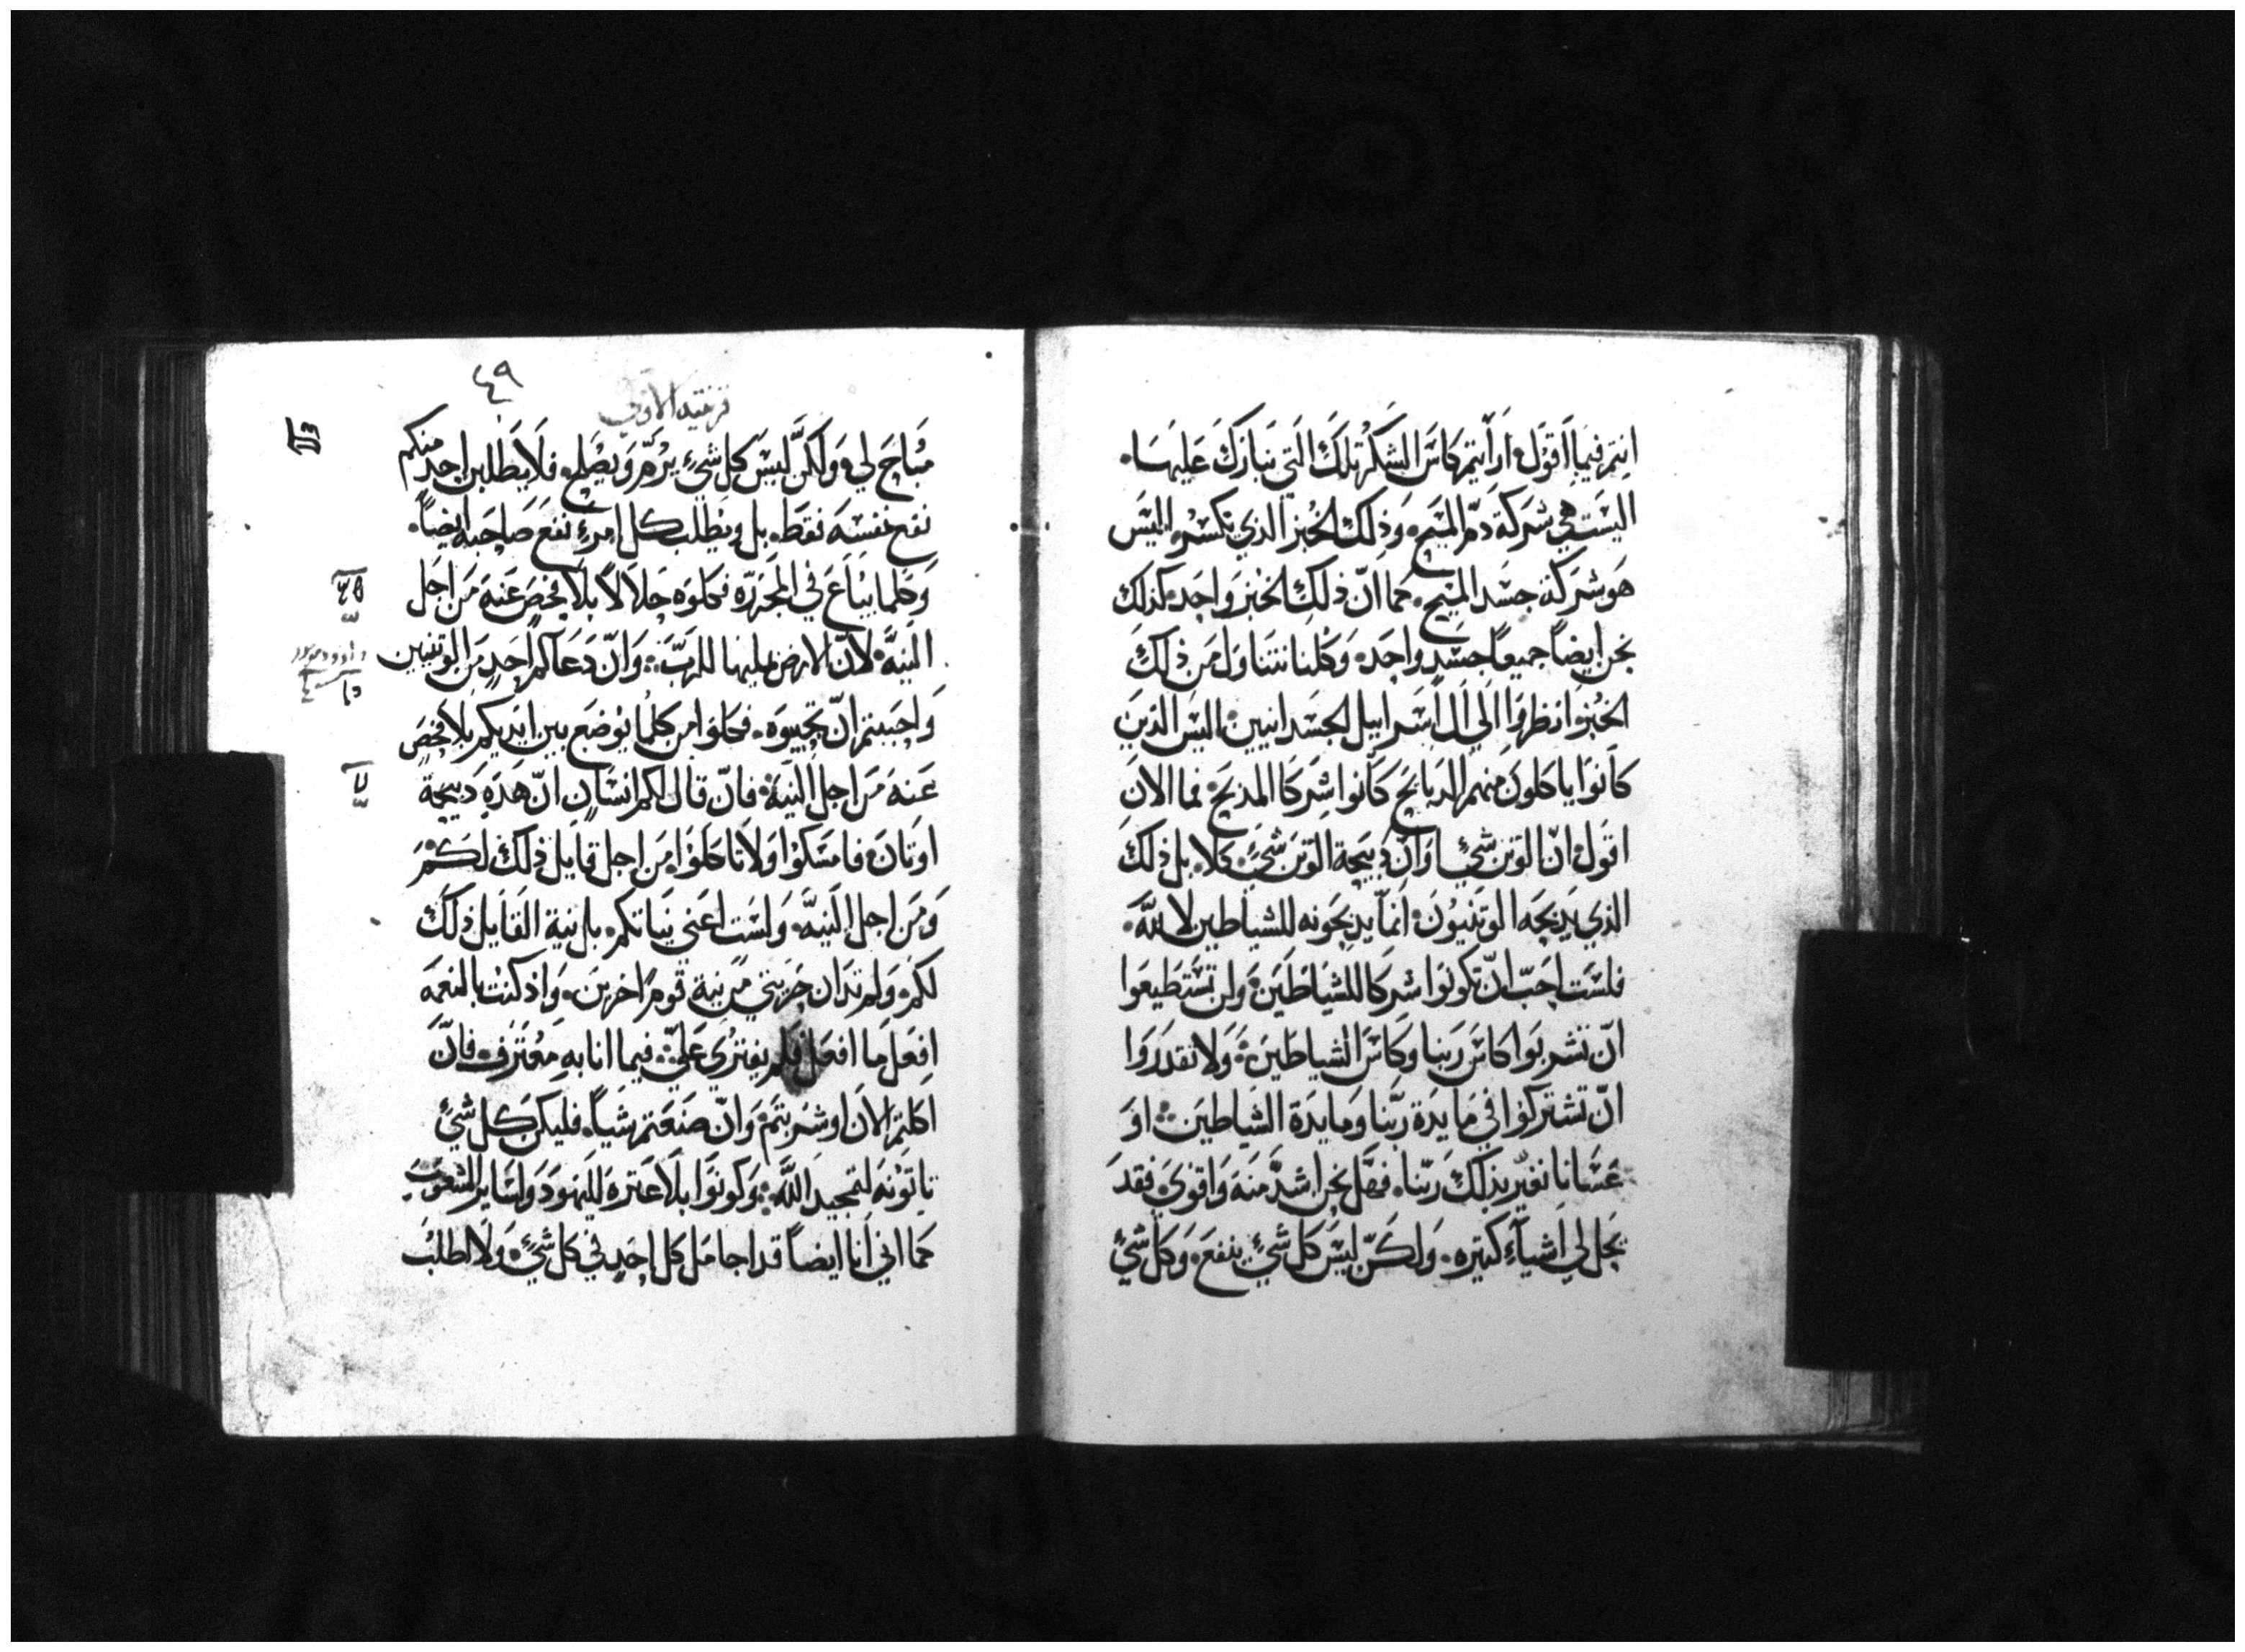 انتم فيما اَقول اَرَأيتم كاسَ الشكر تلكَ التي نبارك عَليهَا.
اليسَت هي شركة دمّ المسَيح. وَذلك الخبز الذي نكسّر اليسَ
هَو شركة جسَد المسَيح. كما انّ ذلك الخبز وَاحدَ كذلك
نحن ايضاً جميعاً جسَدٍ واحدَ. وَكلنا نتناول من ذلك
الخبز وَانظروا الَي ال اسَراييل الجسَدانيين. اليس الذينَ
كانوا ياكلونَ منهم الدبايح كانوا شركا المدبح. فما الان
اقول انّ الوتن شيٌ او انّ دبيحة الوتن شيٌ. كلا. بل ذلك
الذي يدبحَه الوتنيون. انما يدبحَونه للشياطين لا لله.
فلسَت احَبّ انّ تكونَوا شركا للشيَاطَين. وَلن تسَتطيعَوا
انّ تشربَوا كاسَ ربنا وكاسَ الشياطَين. وَلا تقدرَوا
انّ تشتركوا في مايدَة ربّنا وَمايدَة الشيَاطين. اوَ
عَسَانا نغيّر بذلك ربّنا. فهَل نحن اشدّ منهَ وَاقوي. فقدَ
يحَل لي اشياءَ كتيره. وَلكنّ ليسَ كل شيٌ ينفعَ. وَكل شيٌ
٤٩
قرنتيه الاولي
مبَاح لي. وَلكنَّ ليسَ كل شيٌ يرمّ وَيصَلح. فلا يَطلبن احَد منكم
نفع نفسَهَ فقطَ. بل ويطلَب كل امرءٍ نفع صَاحبَه ايضاً.
وَكلما يبَاعَ في المجزرَه فكلوَه حَلالاً بلا فحصَ عَنهَ منَ اجَل
النيّة. لانّ الارض بمليها للربّ. وَانّ دَعَاكم احَدٍ منَ الوتنيين
وَاحبَبتم انّ تجيبوَه. فكلوا من كلما يوضَع بين ايدَيكم بلا فحصٍ
عَنهَ منَ اجل النيَة. فانّ قال لكم انسَانٍ انّ هَدَهِ دَبيحَة
اوتان. فامسَكوا وَلا تاكلوا. منَ اجل قايل ذلك لكم
وَمنَ اجل النيّة. وَلسَت اعَني نيَاتكم. بل نية القايل ذلك
لكم. وَلم تدان حَريتي من نية قَوم اخرينَ. وَاذ كنت بالنعمَة
افعَل ما افعَل فلم يفتري عَليّ. فيما انا بهِ معَترَف. فانّ
اكلتم الان او شربتم. وَانّ صَنعَتم شياً. فليكن كل شيٌ
تاتونهَ لتمجيد اللهَ. وَكونوَا بلا عَترهَ لليهوَد وَلسَاير الشعَوب
كما اني انا ايضاً قد اجامل كل احَدٍ في كل شيٌ. وَلا اطلبُ